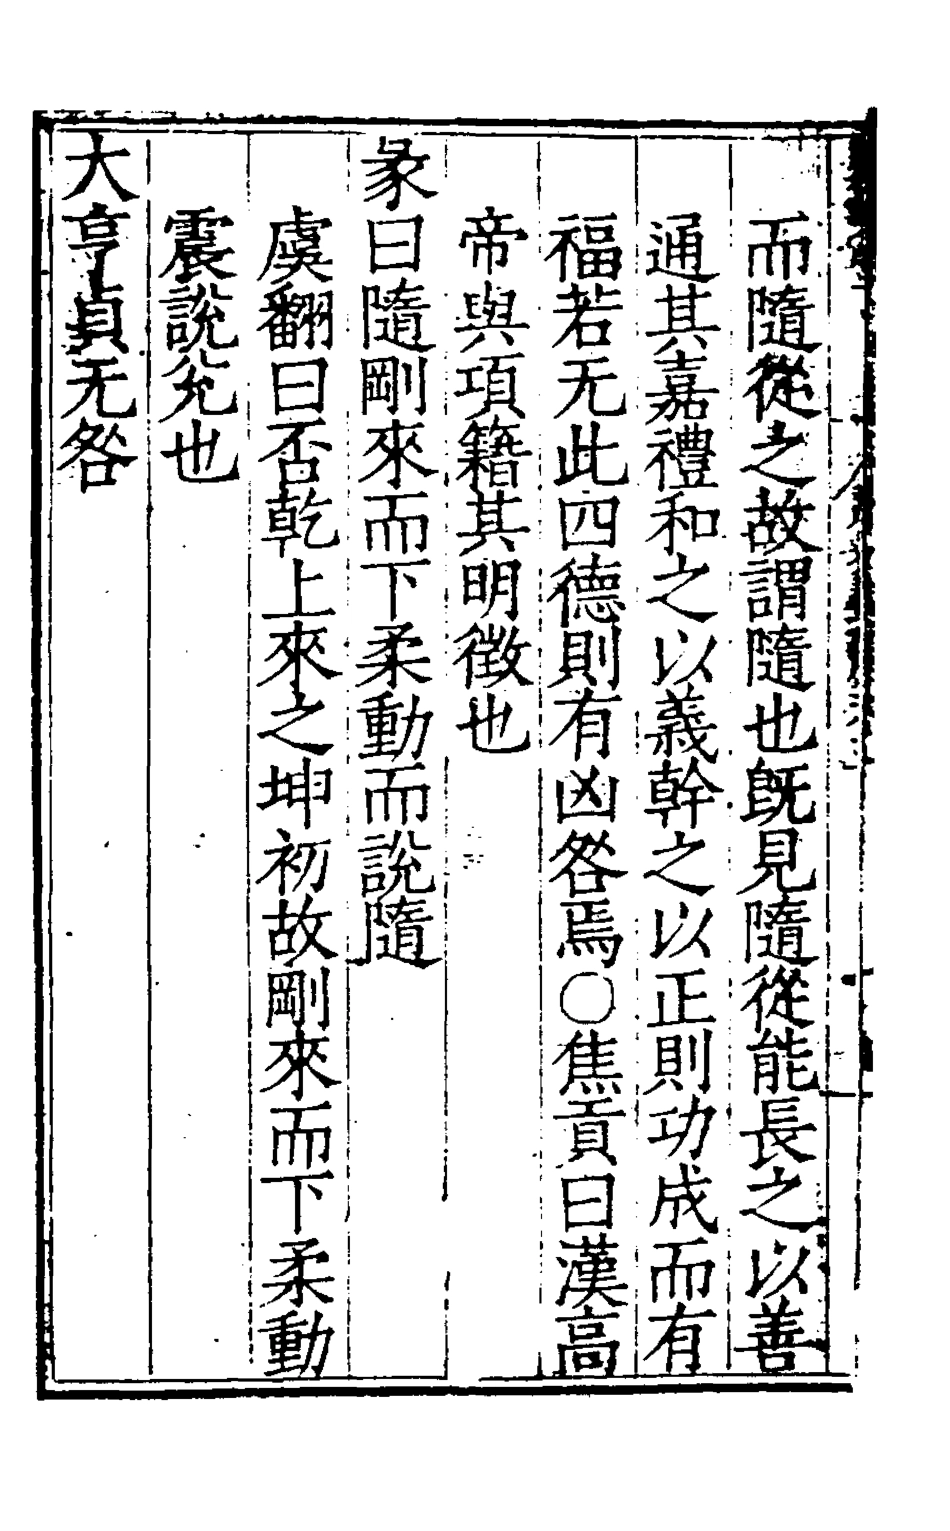 而隨從之故謂隨也旣見隨從能長之以善
通其嘉禮和之以義幹之以正則功成而有
福若无此四德則有凶咎焉〇焦貢曰漢高
帝與項籍其明徵也
彖曰隨剛來而下柔動而說隨
虞翻曰否乾上來之坤初故剛來而下柔動
震說兊也
大亨貞无咎